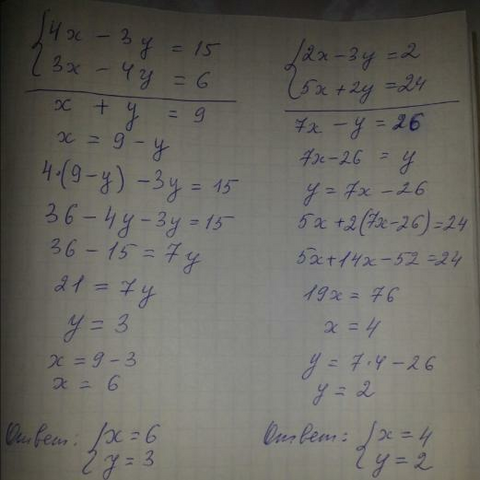 4x - 3y = 15
3x - 4y = 6
x + y = 9
x = 9 - y
4·(9-y) - 3y = 15
36 - 4y - 3y = 15
36 - 15 = 7y
21 = 7y
y = 3
x = 9 - 3
x = 6
Ответ: { x = 6
y = 3
2x - 3y = 2
5x + 2y = 24
7x - y = 26
7x - 26 = y
y = 7x - 26
5x + 2(7x - 26) = 24
5x + 14x - 52 = 24
19x = 76
x = 4
y = 7·4 - 26
y = 2
Ответ: { x = 4
y = 2